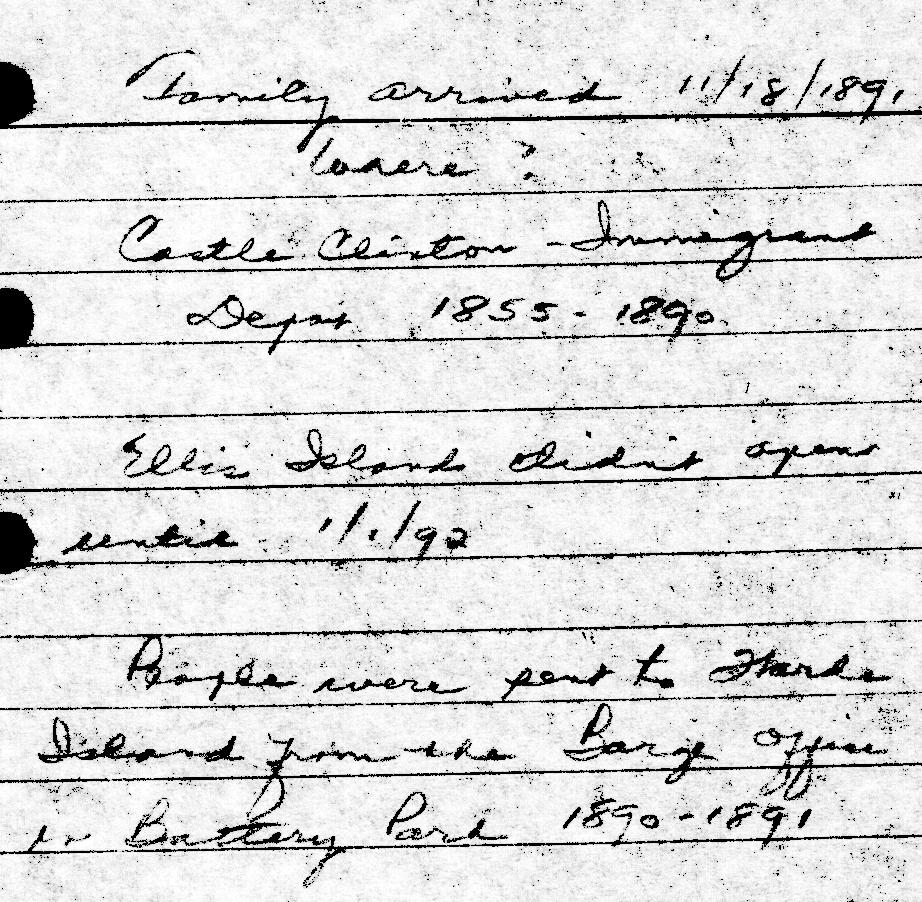 Family arrived 11/18/1891
Where ?
Castle Clinton - Immigrant
Depot 1855 - 1890
Ellis Island didn't open
until 1/1/92
People were sent to
Island from the Barge Office
in Battery Park 1890-1891